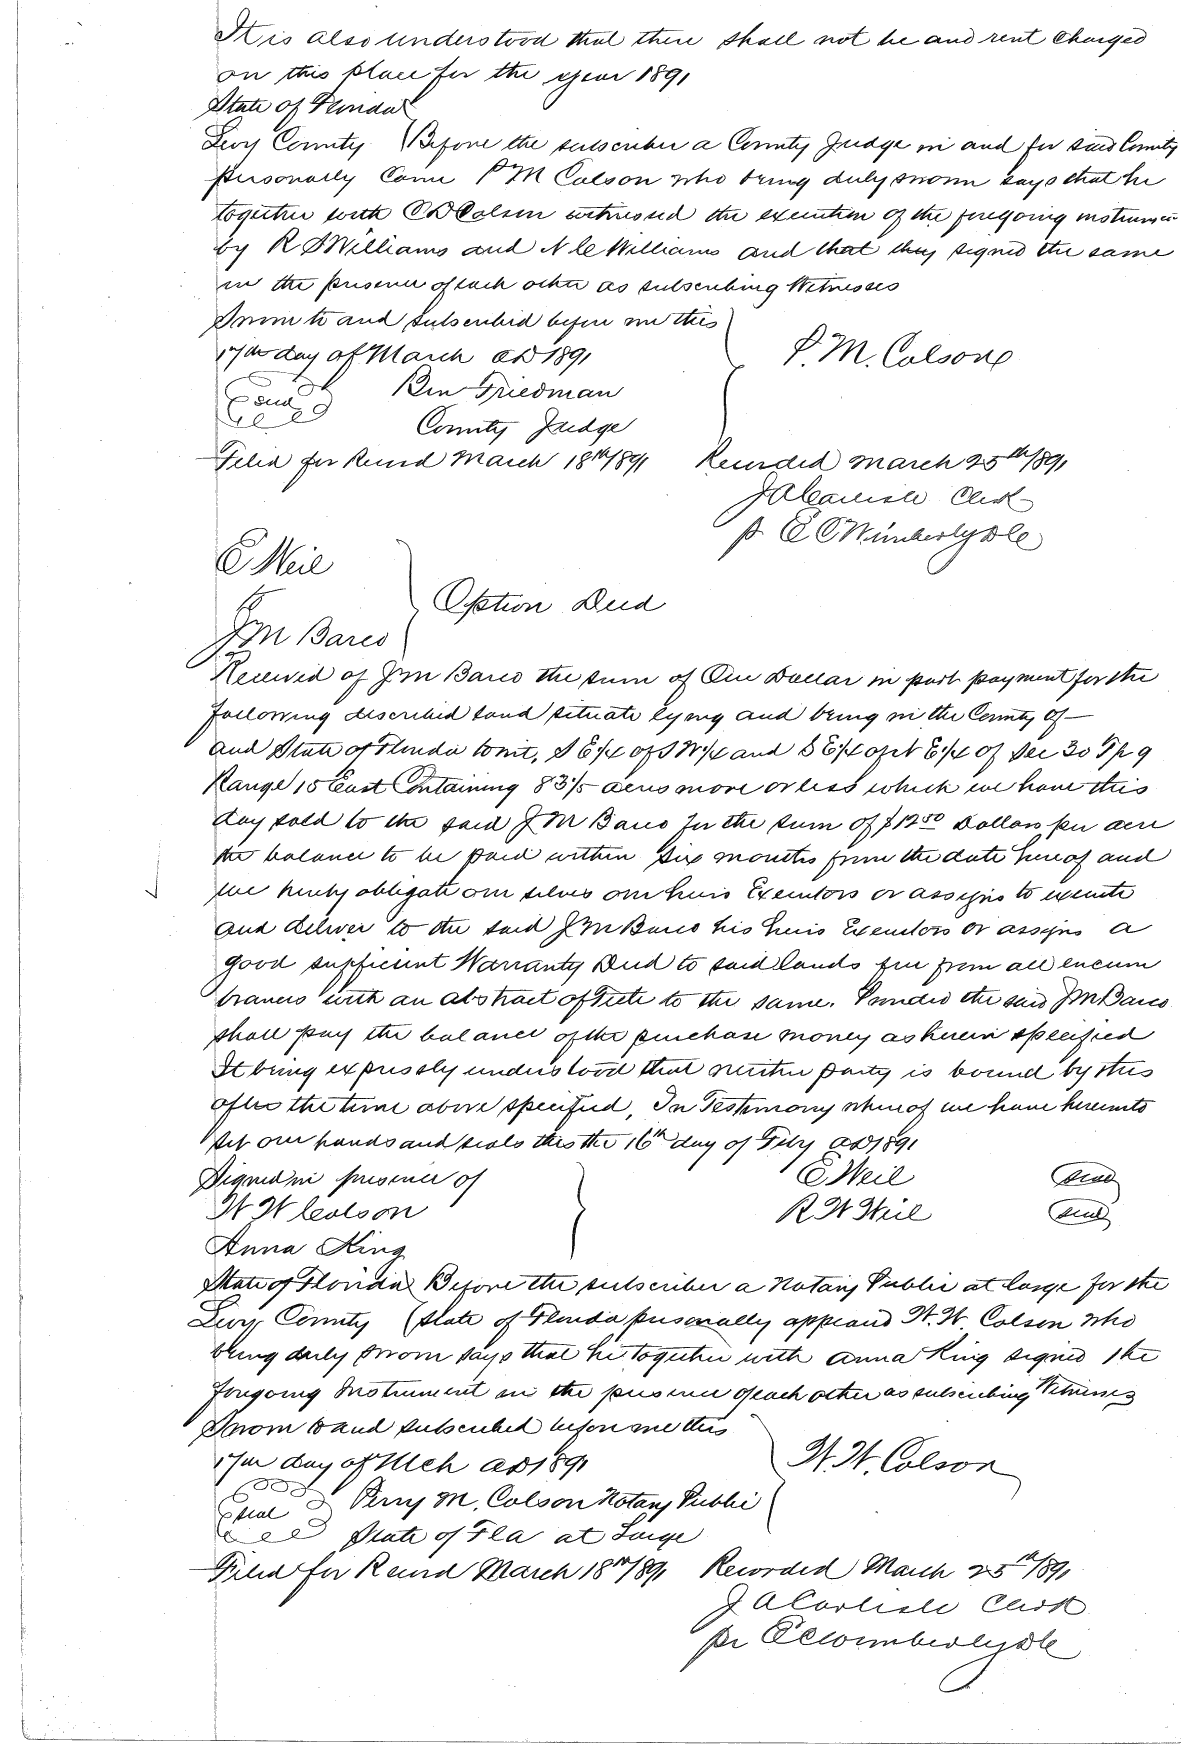 It is also understood that there shall not be and rent charged
on this place for the year 1891
State of Florida
Levy County Before the subscriber a County Judge in and for said County
personally came P M Colson who being duly sworn says that he
together with C D Colson witnessed the execution of the foregoing instrumen
by R S Williams and N C Williams and that they signed the same
in the presence of each other as subscribing Witnesses
Sworn to and subscribed before me this
17th day of March AD 1891 P. M. Colson
Seal Ben Friedman
County Judge
Filed for Record March 18th/891 Recorded March 25th/891
J A Carlisle Clerk
pr E C Wimberly DC
E Weil
to
J M Barco Option Deed
Received of J M Barco the sum of One Dollar in part payment for the
following described land situate lying and being in the County of —
and State of Florida towit, S E 1/4 of S W 1/4 and S E 1/4 of N E 1/4 of Sec 30 Tp 9
Range 15 East Containing 83 1/5 acres more or less which we have this
day sold to the said J M Barco for the sum of $12 50 Dollars per acre
the balance to be paid within six months from the date hereof and
we hereby obligate our selves our heirs Executors or assigns to execute
and deliver to the said J M Barco his heirs Executors or assigns a
good sufficient Warranty Deed to said lands free from all encum
brances with an abstract of Title to the same. Provided the said J M Barco
shall pay the balance of the purchase money as herein specified
It being expressly understood that neither party is bound by this
after the time above specified, In Testimony whereof we have hereunto
set our hands and seals this the 16th day of Feby AD 1891
Signed in presence of E Weil Seal
W W Colson R W Weil Seal
Anna King
State of Florida Before the subscriber a Notary Public at large for the
Levy County State of Florida personally appeared W. W. Colson who
being duly sworn says that he together with Anna King signed the
foregoing Instrument in the presence of each other as subscribing Witnesses
Sworn to and subscribed before me this
17th day of Mch AD 1891 W. W. Colson
Seal Perry M. Colson Notary Public
State of Fla at Large
Filed for Record March 18th/891 Recorded March 25th/891
J A Carlisle Clerk
pr E C Wimberly DC